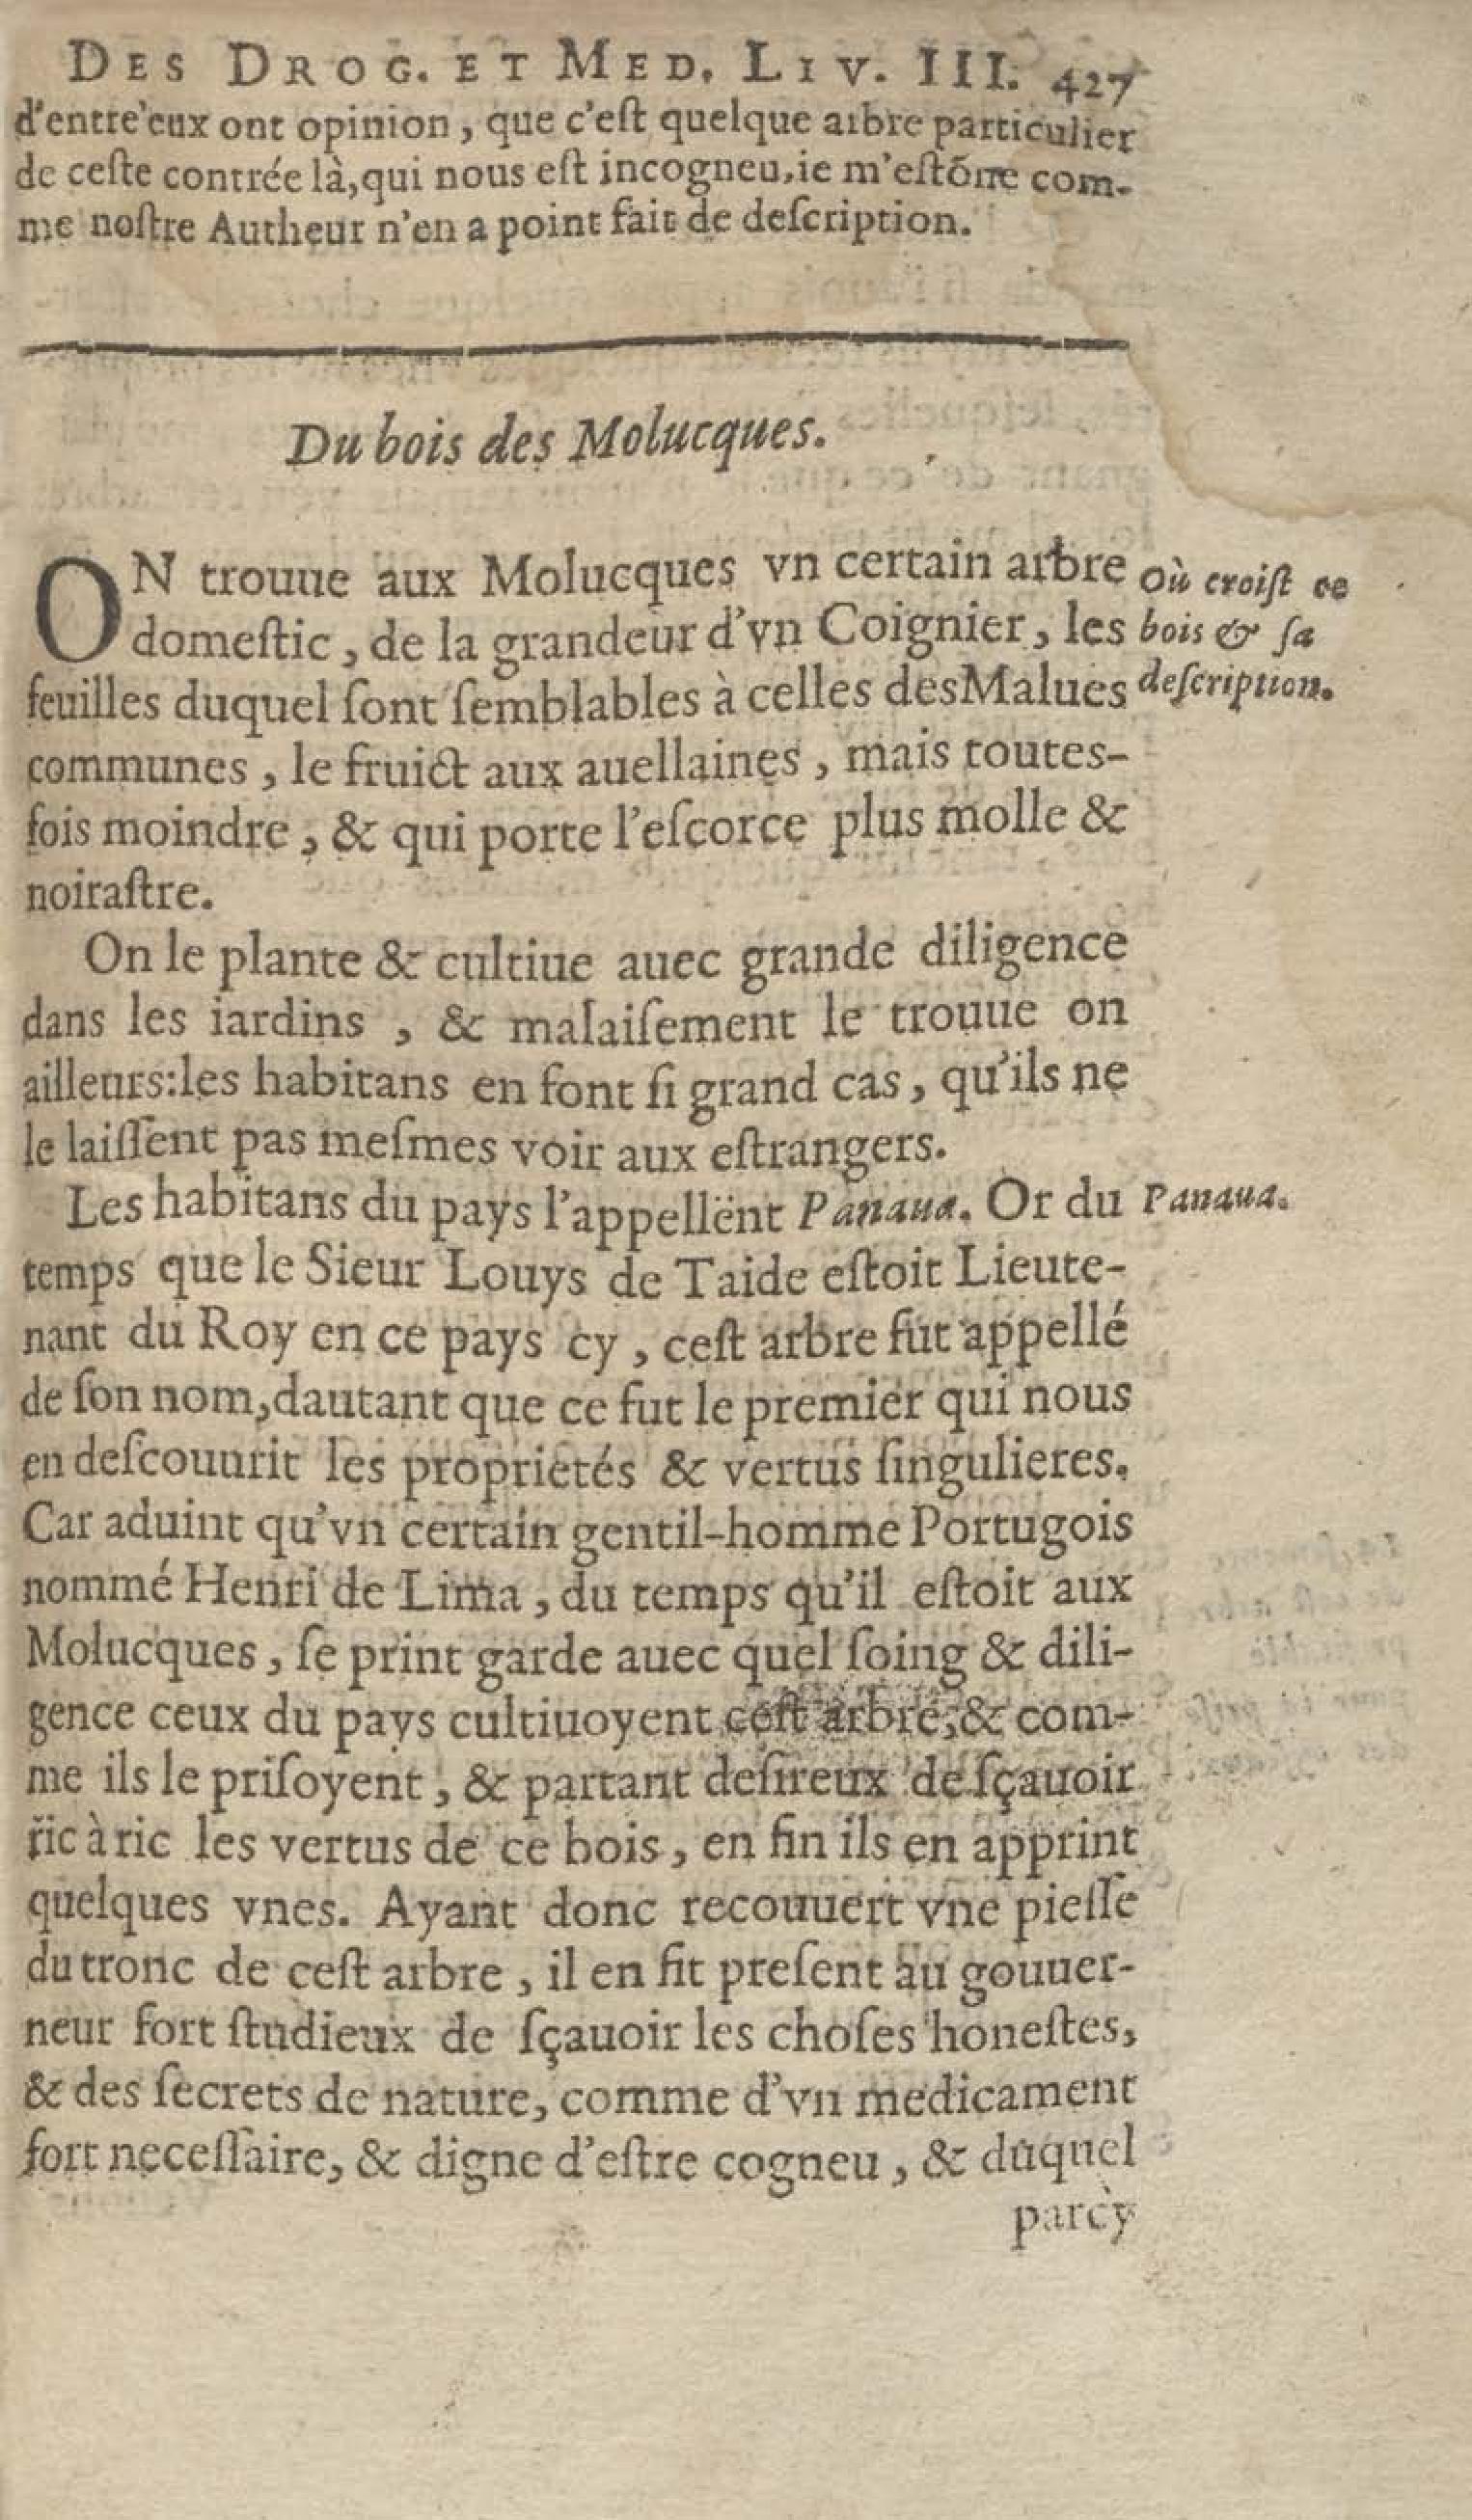 DES DROG. ET MED. LIV. III. 427
d'entre'eux ont opinion, que c'eſt quelque arbre particulier
de ceſte contrée là,qui nous eſt incogneu,ie m'eſtõne com-
me noſtre Autheur n'en a point fait de deſcription.
Du bois des Molucques.
ON trouue aux Molucques vn certain arbre
domeſtic, de la grandeur d'vn Coignier, les
feuilles duquel ſont ſemblables à celles desMalues
communes, le fruict aux auellaines, mais toutes-
fois moindre, & qui porte l'eſcorce plus molle &
noiraſtre.
où croiſt ce
bois & ſa
deſcription.
On le plante & cultiue auec grande diligence
dans les iardins, & malaiſement le trouue on
ailleurs:les habitans en font ſi grand cas, qu'ils ne
le laiſſent pas meſmes voir aux eſtrangers.
Les habitans du pays l'appellënt Panaua. Or du
Panaua.
temps que le Sieur Louys de Taide eſtoit Lieute-
nant du Roy en ce pays cy, ceſt arbre fut appellé
de ſon nom,dautant que ce fut le premier qui nous
en deſcouurit les proprietés & vertus ſingulieres.
Car aduint qu'vn certain gentil-homme Portugois
nommé Henri de Lima, du temps qu'il eſtoit aux
Molucques, ſe print garde auec quel ſoing & dili-
gence ceux du pays cultiuoyent ceſt arbre,& com-
me ils le priſoyent, & partant deſireux de ſçauoir
ric à ric les vertus de ce bois, en fin ils en apprint
quelques vnes. Ayant donc recouuert vne pieſſe
du tronc de ceſt arbre, il en fit preſent au gouuer-
neur fort ſtudieux de ſçauoir les choſes honeſtes,
& des ſecrets de nature, comme d'vn medicament
fort neceſſaire, & digne d'eſtre cogneu, & duquel
parcy